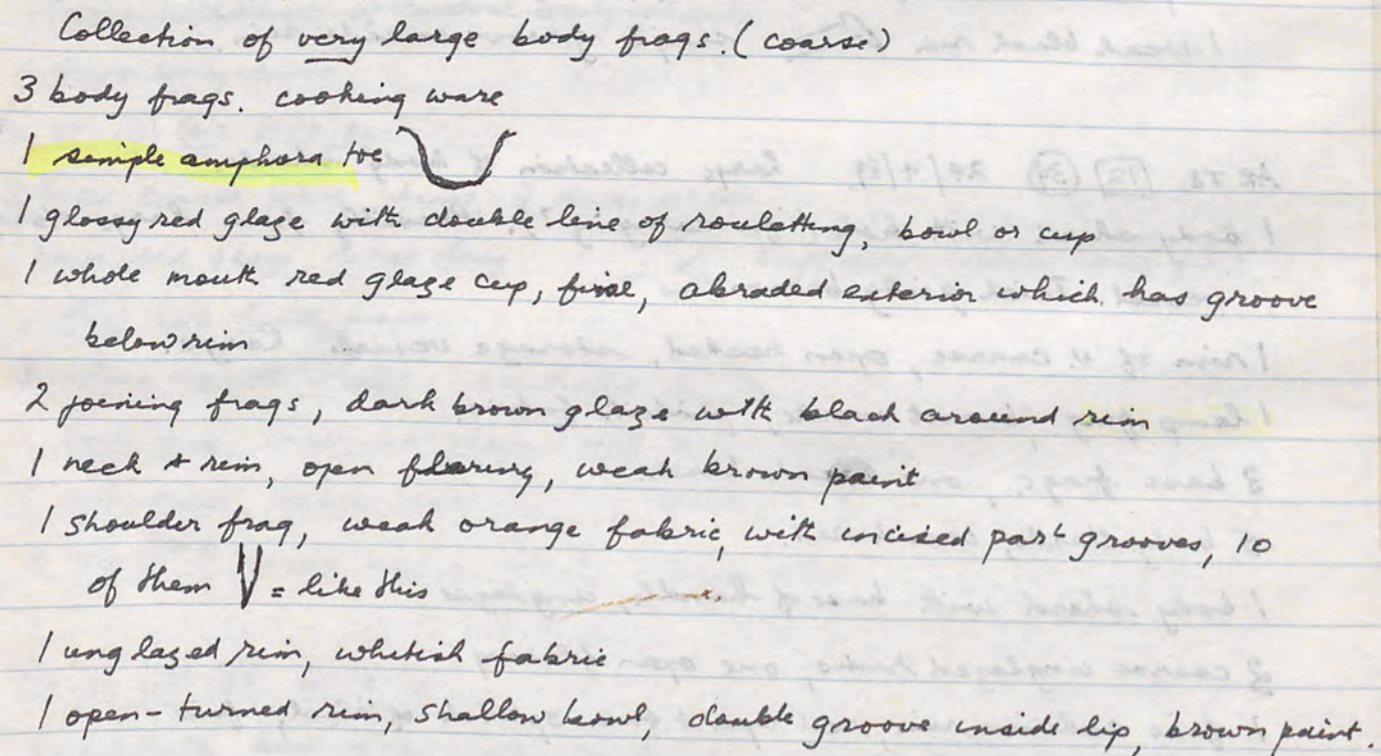 Collection of very large body frags. (coarse)
3 body frags. cooking ware
1 simple amphora toe
1 glossy red glaze with double line of rouletting, bowl or cup
1 whole mouth red glaze cup, fine, abraded exterior which has groove
below rim
2 joining frags, dark brown glaze with black around rim
1 neck + rim, open flaring, weak brown paint
1 shoulder frag, weak orange fabric, with incised part grooves, 10
of them = like this
1 unglazed rim, whitish fabric
1 open-turned rim, shallow bowl, double groove inside lip, brown paint.